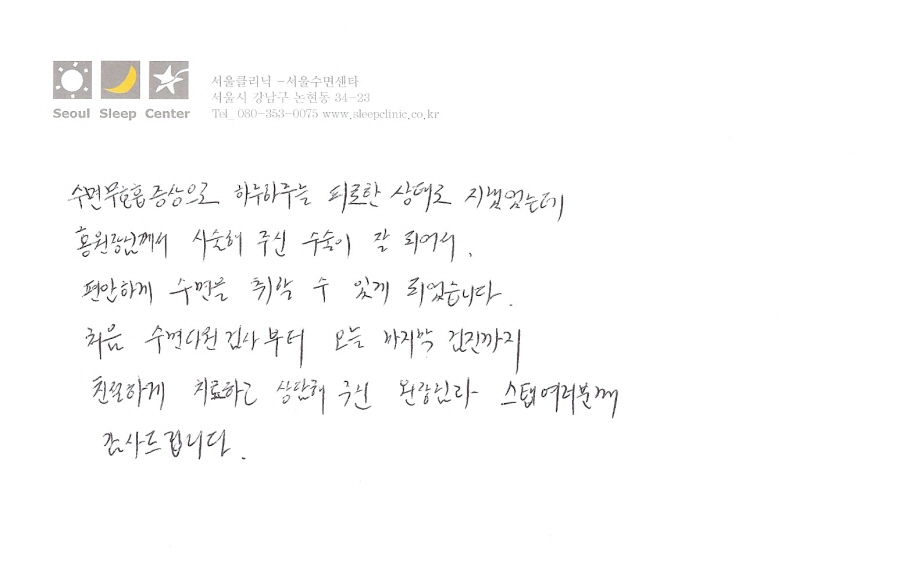 Seoul Sleep Center
서울클리닉 -서울수면센타
서울시 강남구 논현동 34-23
Tel_ 080-353-0075 www.sleepclinic.co.kr
수면무호흡증상으로 하루하루를 피로한 상태로 지냈었는데
홍원장님께서 시술해 주신 수술이 잘 되어서,
편안하게 수면을 취할 수 있게 되었습니다.
처음 수면다원검사부터 오늘 마지막 검진까지
친절하게 치료하고 상담해 주신 원장님과 스탭여러분께
감사드립니다.